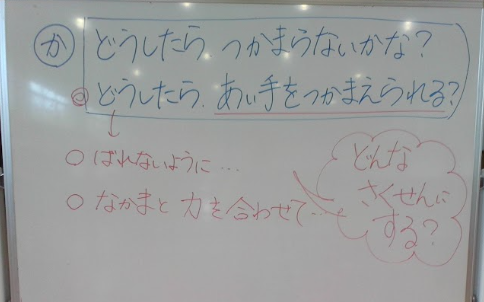 か どうしたら つかまらないかな?
◎どうしたら、あい手をつかまえられる?
↓
○ ばれないように…
○ なかまと 力を合わせて…
どんな
さくせんに
する?